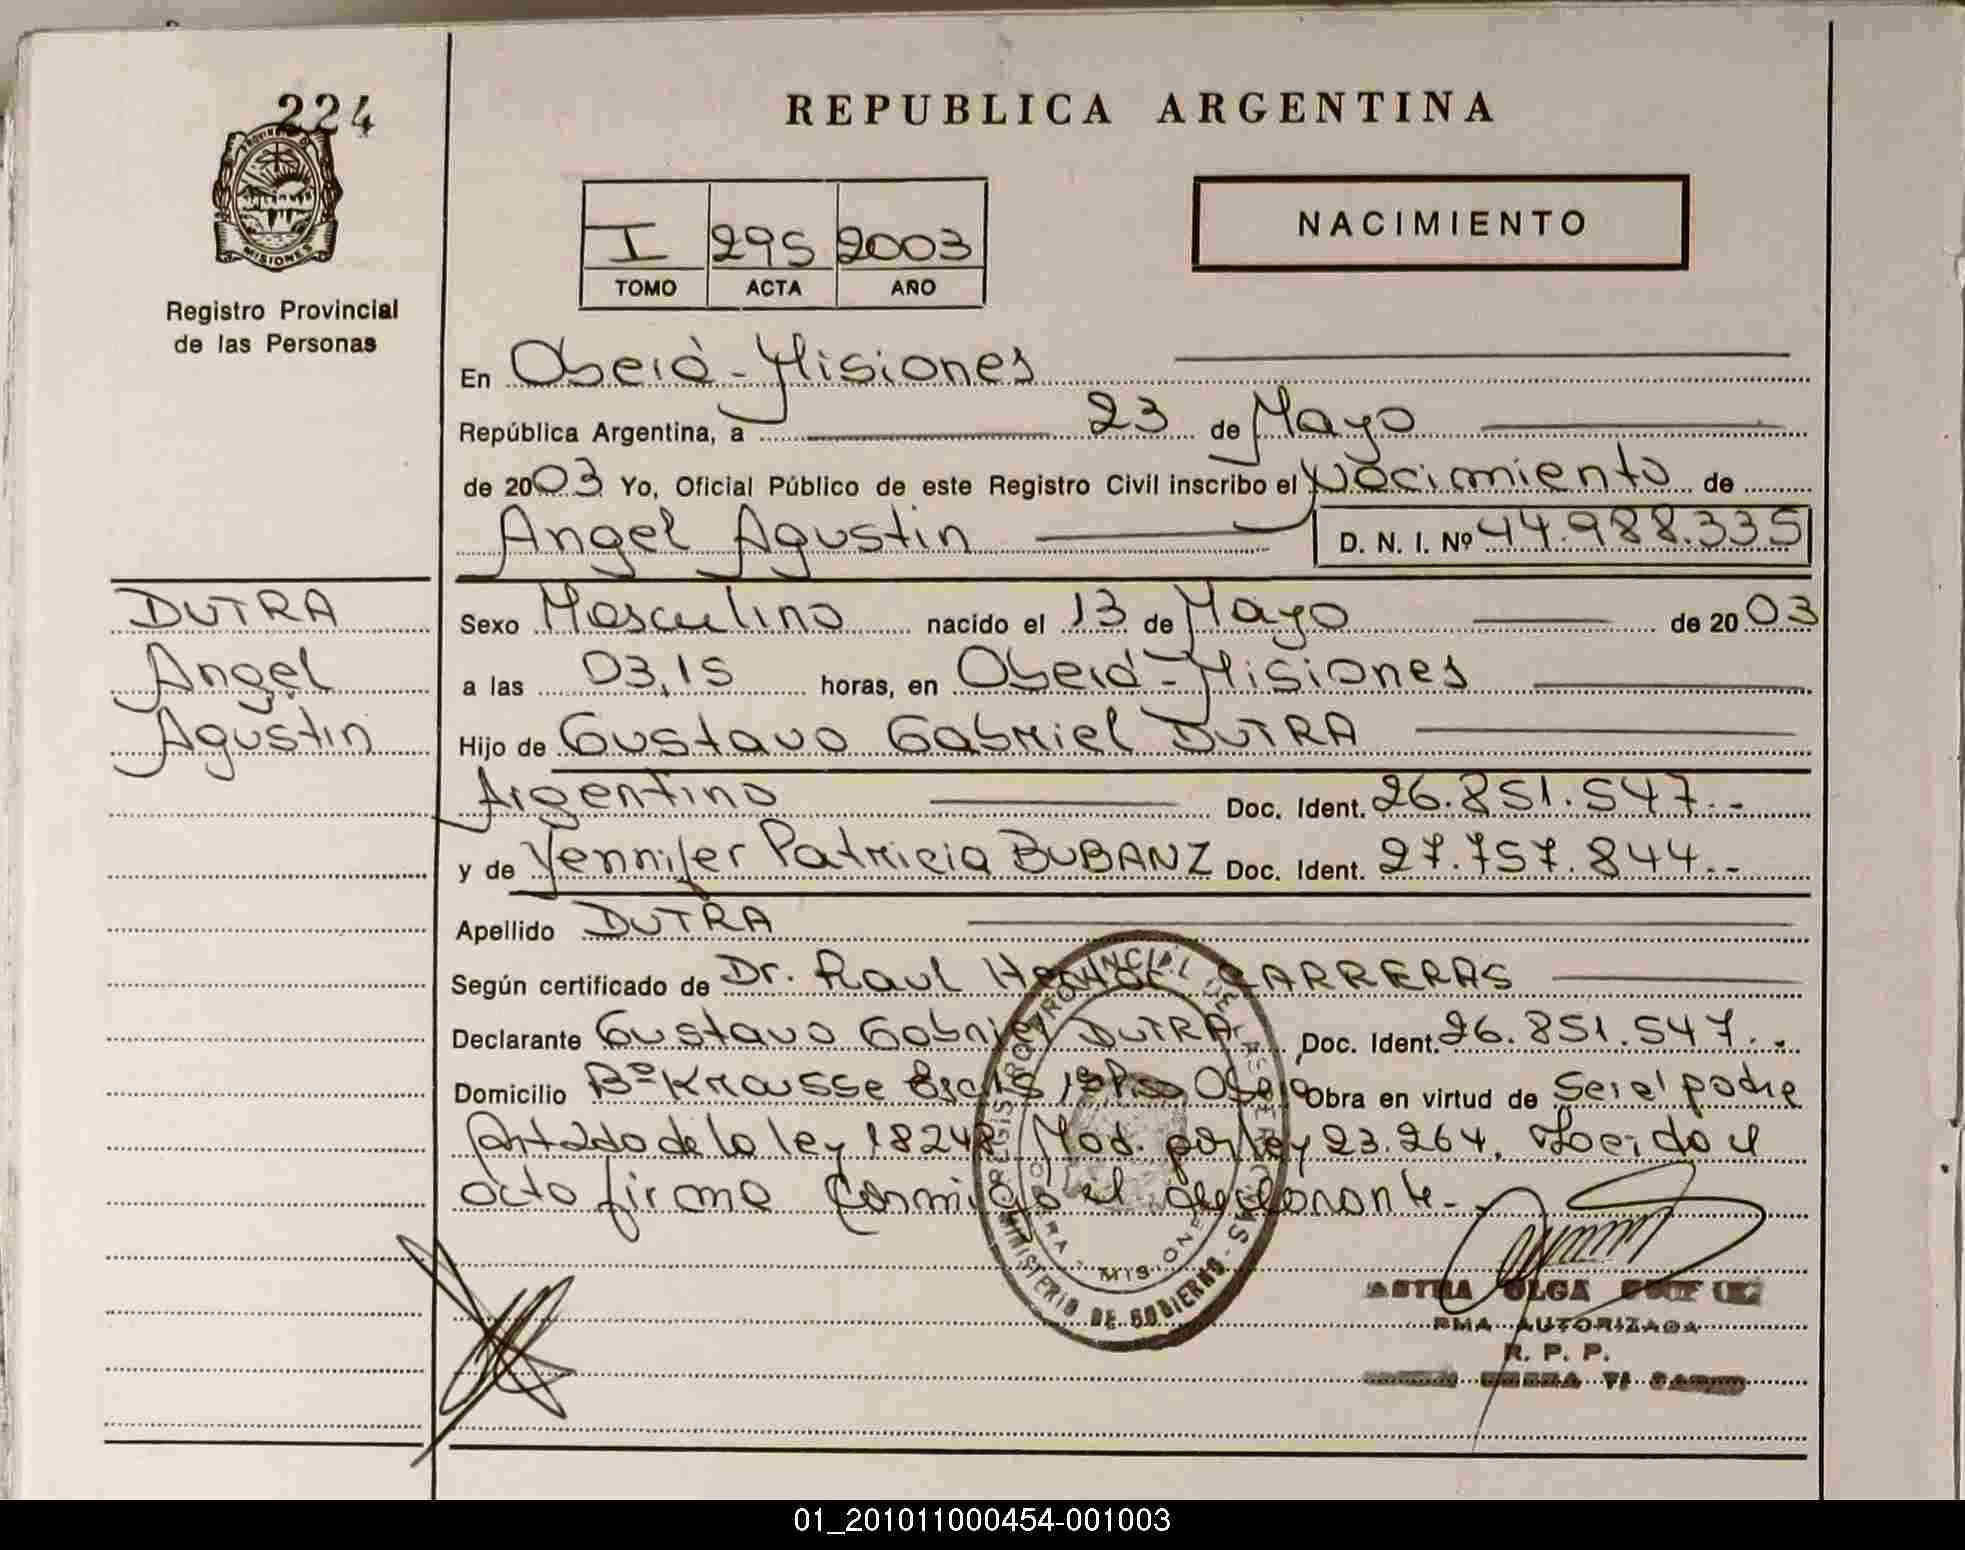 224
REPUBLICA ARGENTINA
PROVINCIA D MISIONES
Registro Provincial
de las Personas
I 295 2003
TOMO ACTA AÑO
NACIMIENTO
En Oberá - Misiones
República Argentina, a 23 de Mayo
de 2003 Yo, Oficial Público de este Registro Civil inscribo el Nacimiento de
Angel Agustin D. N. I. Nº 44.988.335
DUTRA
Angel
Agustin
Sexo Masculino nacido el 13 de Mayo de 2003
a las 03,15 horas, en Oberá - Misiones
Hijo de Gustavo Gabriel DUTRA
Argentino Doc. Ident. 26.851.547.-
y de Yennifer Patricia BUBANZ Doc. Ident. 27.757.844.-
Apellido DUTRA
Según certificado de Dr. Raul Hector CARRERAS
Declarante Gustavo Gabriel DUTRA Doc. Ident. 26.851.547.-
Domicilio Bº Krausse Esc 15 1º Piso Oberá Obra en virtud de ser el padre
Art 2do de la ley 18248 Mod. por ley 23.264. Leido el
acto firma conmigo el declarante.-
REGISTRO PROVINCIAL DE LAS PERSONAS - MINISTERIO DE GOBIERNO
MISIONES
OLGA
AUTORIZADA
R. P. P.
01_201011000454-001003